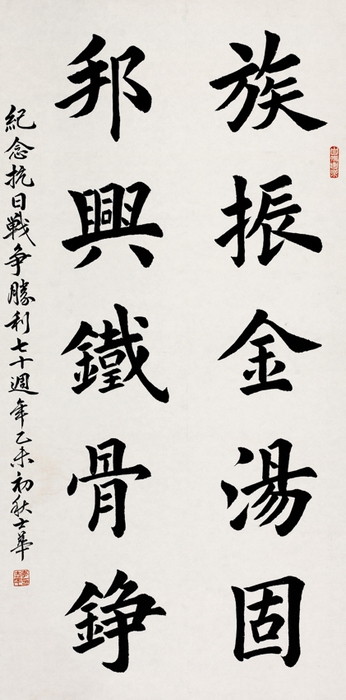 族振金湯固
邦興鐵骨錚
紀念抗日戰争勝利七十週年乙未初秋士華